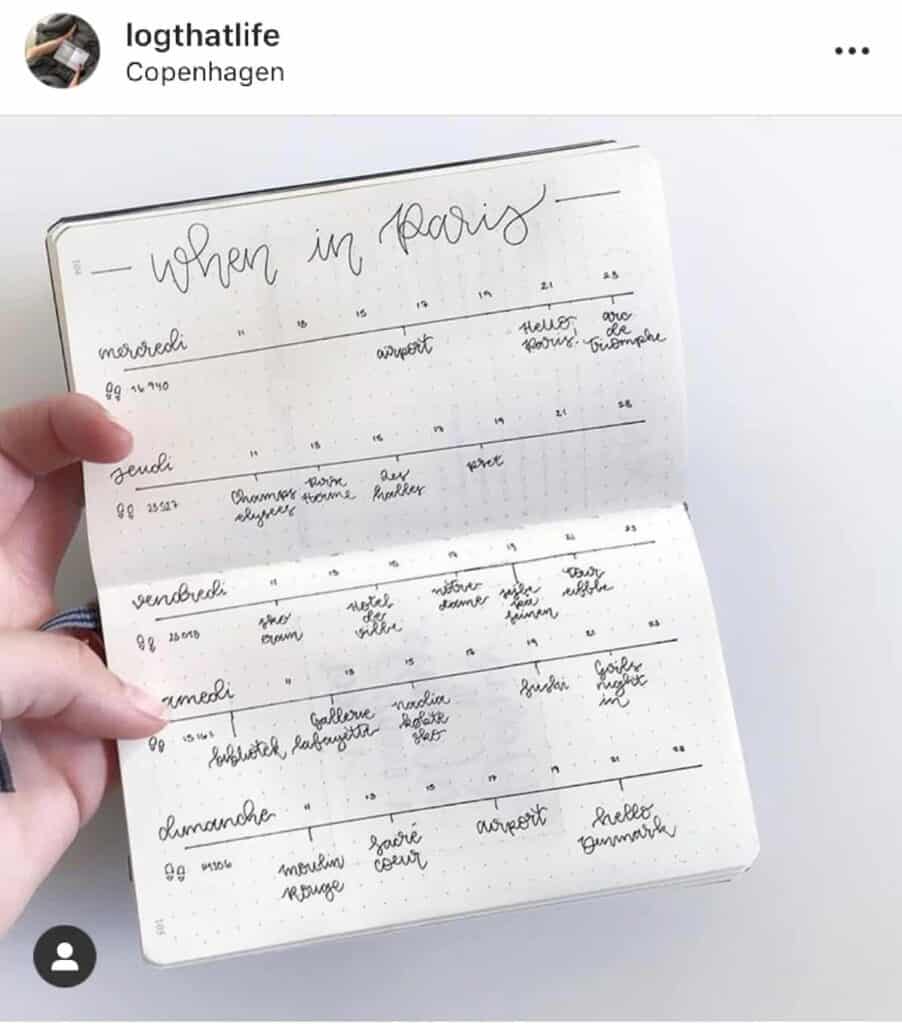 logthatlife
Copenhagen
104
when in Paris
mercredi 11 13 15 17 19 21 23
airport
Hello Paris!
arc de Triomphe
16 940
jeudi 11 13 15 17 19 21 23
Champs elysees
Les halles
pret
23 527
vendredi 11 13 15 17 19 21 23
sko
Hotel de ville
nôtre dame
sejle på seinen
tour eiffle
amedi 11 13 15 17 19 21 23
bibliotek
Gallerie lafayette
nadia købte sko
sushi
Girls night in
15 163
dimanche 11 13 15 17 19 21 23
moulin rouge
Sacré coeur
airport
hello Denmark
105